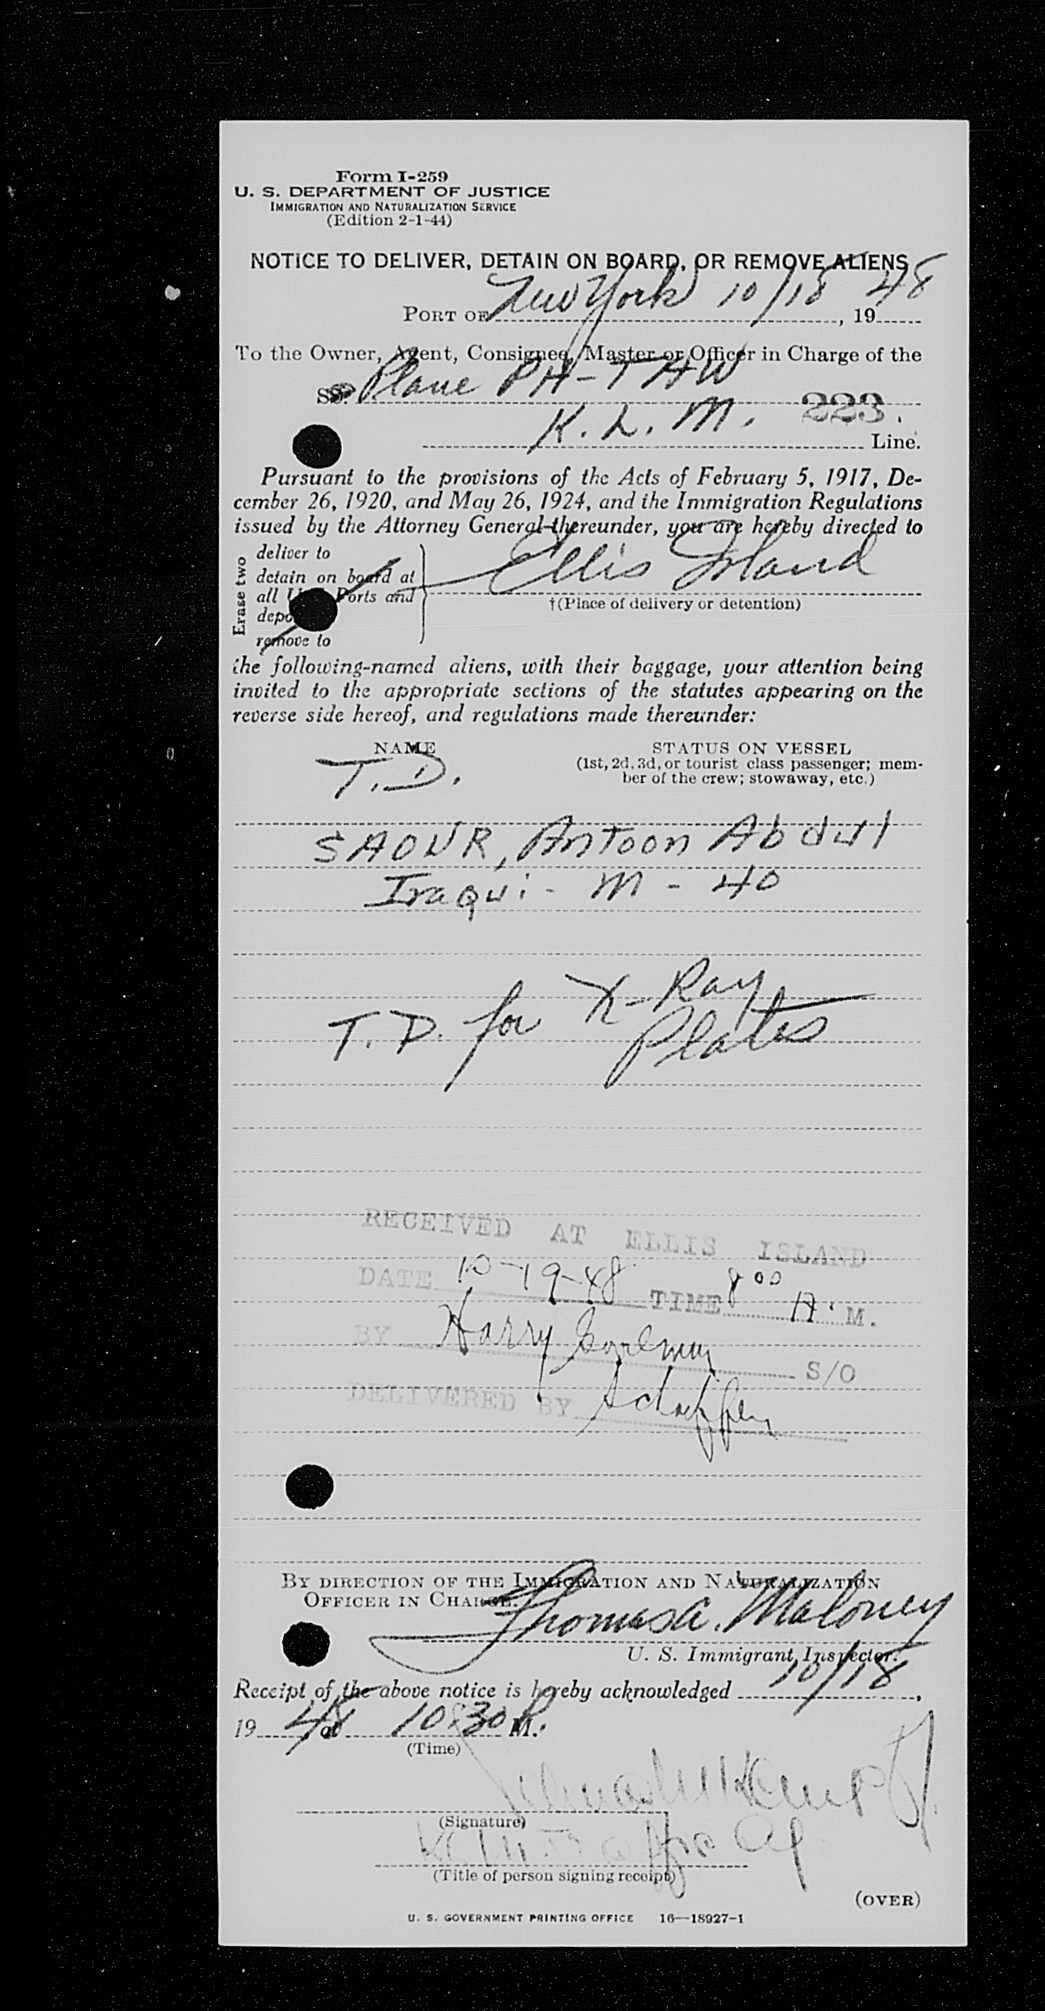 Form I-259
U. S. DEPARTMENT OF JUSTICE
IMMIGRATION AND NATURALIZATION SERVICE
(Edition 2-1-44)
NOTICE TO DELIVER, DETAIN ON BOARD, OR REMOVE ALIENS
PORT OF New York 10/18, 1948
To the Owner, Agent, Consignee, Master or Officer in Charge of the
SS. Plane PH-TAW
K. L. M. 223. Line.
Pursuant to the provisions of the Acts of February 5, 1917, De-
cember 26, 1920, and May 26, 1924, and the Immigration Regulations
issued by the Attorney General thereunder, you are hereby directed to
Erase two
deliver to
detain on board at
all Ports and
remove to
Ellis Island
†(Place of delivery or detention)
the following-named aliens, with their baggage, your attention being
invited to the appropriate sections of the statutes appearing on the
reverse side hereof, and regulations made thereunder:
NAME
STATUS ON VESSEL
(1st, 2d, 3d, or tourist class passenger; mem-
ber of the crew; stowaway, etc.)
T.D.
SAOUR, Antoon Abdul
Iraqui - M - 40
T.D. for X-Ray
Plates
RECEIVED AT ELLIS ISLAND
DATE 10-19-48 TIME 8 00 A. M.
BY Harry S/O
DELIVERED BY
BY DIRECTION OF THE IMMIGRATION AND NATURALIZATION
OFFICER IN CHARGE.
Thomas A. Maloney
U. S. Immigrant Inspector.
Receipt of the above notice is hereby acknowledged 10/18,
1948, at 10:30 P.M.
(Time)
(Signature)
(Title of person signing receipt)
(OVER)
U. S. GOVERNMENT PRINTING OFFICE 16—18927-1